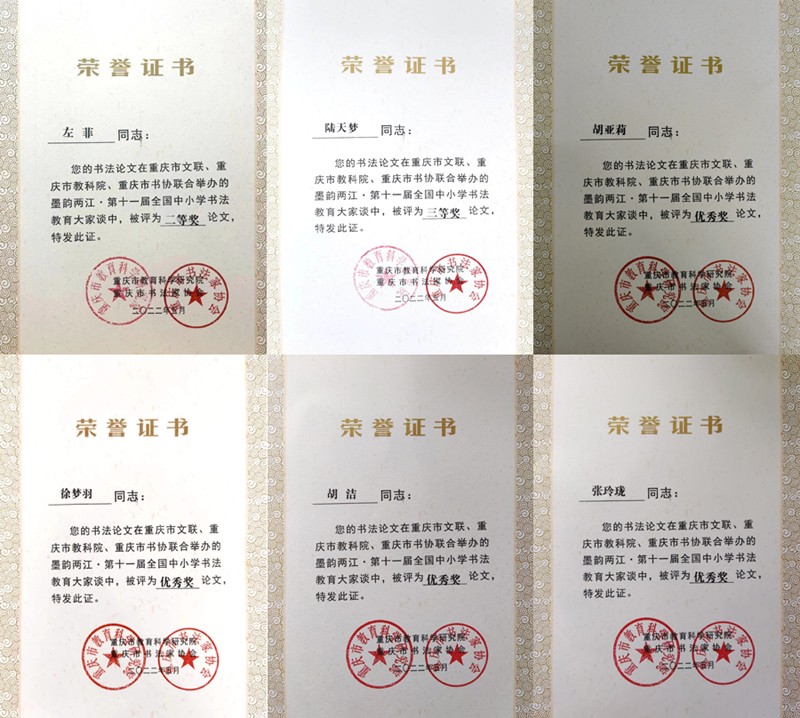 荣誉证书
左菲 同志：
您的书法论文在重庆市文联、重
庆市教科院、重庆市书协联合举办的
墨韵两江·第十一届全国中小学书法
教育大家谈中，被评为 二等奖 论文，
特发此证。
重庆市教育科学研究院
重庆市书法家协会
二〇二二年五月
荣誉证书
陆天梦 同志：
您的书法论文在重庆市文联、重
庆市教科院、重庆市书协联合举办的
墨韵两江·第十一届全国中小学书法
教育大家谈中，被评为 三等奖 论文，
特发此证。
重庆市教育科学研究院
重庆市书法家协会
二〇二二年五月
荣誉证书
胡亚莉 同志：
您的书法论文在重庆市文联、重
庆市教科院、重庆市书协联合举办的
墨韵两江·第十一届全国中小学书法
教育大家谈中，被评为 优秀奖 论文，
特发此证。
重庆市教育科学研究院
重庆市书法家协会
二〇二二年五月
荣誉证书
徐梦羽 同志：
您的书法论文在重庆市文联、重
庆市教科院、重庆市书协联合举办的
墨韵两江·第十一届全国中小学书法
教育大家谈中，被评为 优秀奖 论文，
特发此证。
重庆市教育科学研究院
重庆市书法家协会
二〇二二年五月
荣誉证书
胡洁 同志：
您的书法论文在重庆市文联、重
庆市教科院、重庆市书协联合举办的
墨韵两江·第十一届全国中小学书法
教育大家谈中，被评为 优秀奖 论文，
特发此证。
重庆市教育科学研究院
重庆市书法家协会
二〇二二年五月
荣誉证书
张玲珑 同志：
您的书法论文在重庆市文联、重
庆市教科院、重庆市书协联合举办的
墨韵两江·第十一届全国中小学书法
教育大家谈中，被评为 优秀奖 论文，
特发此证。
重庆市教育科学研究院
重庆市书法家协会
二〇二二年五月